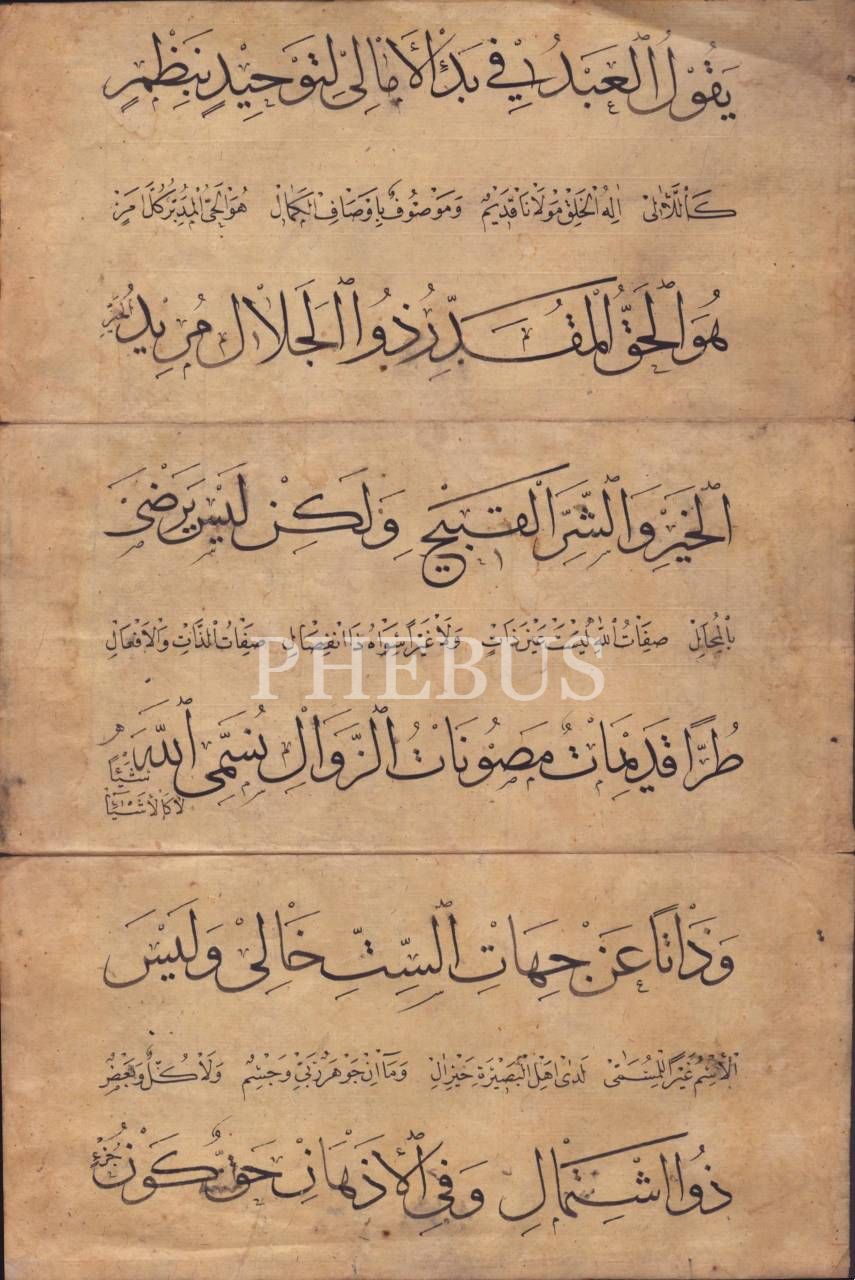 يَقُوْلُ الْعَبْدُ فِي بَدْءِ الْأَمَالِيْ لِتَوْحِيْدٍ بِنَظْمٍ
كَاللَّاٰلِيْ اِلٰهُ الْخَلْقِ مَوْلَانَا قَدِيْمٌ وَمَوْصُوْفٌ بِاَوْصَافِ الْكَمَالِ هُوَ الْحَيُّ الْمُدَبِّرُ كُلَّ اَمْرٍ
هُوَ الْحَقُّ الْمُقَدِّرُ ذُوا الْجَلَالِ مُرِيْدُ الْخَيْرِ
اَلْخَيْرِ وَالشَّرِّ الْقَبِيْحِ وَلَكِنْ لَيْسَ يَرْضَى
بِالْمُحَالِ صِفَاتُ اللّٰهِ لَيْسَتْ عَيْنَ ذَاتٍ وَلَا غَيْرًا سِوَاهُ ذَا انْفِصَالٍ صِفَاتُ الذَّاتِ وَالْاَفْعَالِ
PHEBUS
طُرًّا قَدِيْمَاتٌ مَصُوْنَاتُ الزَّوَالِ نُسَمِّى اللّٰهَ شَيْئًا
لَا كَالْاَشْيَاءِ
وَذَاتًا عَنْ جِهَاتِ السِّتِّ خَالِيْ وَلَيْسَ
الْاِسْمُ غَيْرًا لِلْمُسَمَّى لَدٰى اَهْلِ الْبَصِيْرَةِ خَيْرِ اٰلِ وَمَا اِنْ جَوْهَرٌ رَبِّيْ وَجِسْمٌ وَلَا كُلٌّ وَبَعْضٌ
ذُوا اشْتِمَالِ وَفِي الْاَذْهَانِ حَقٌّ كَوْنُ جُزْءٍ